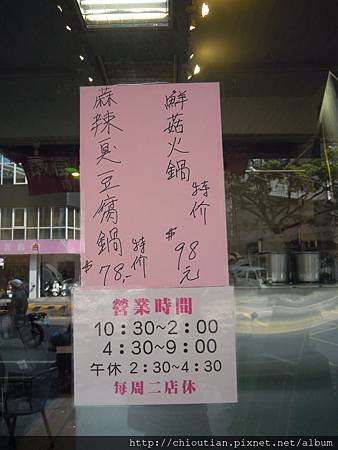 鮮菇火鍋
特价
$98元
麻辣臭豆腐鍋
特价
$78.-
營業時間
10：30~2：00
4：30~9：00
午休 2:30~4:30
每周二店休
http://chioutian.pixnet.net/album